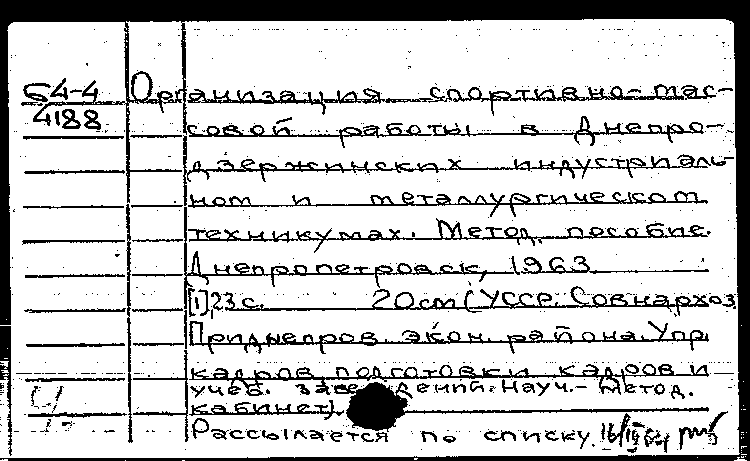 Б4-4
4188
Организация спортивно-мас-
совой работы в Днепро-
дзержинских индустриаль-
ном и металлургическом
техникумах. Метод. пособие.
Днепропетровск, 1963.
[1],23 с. 20см (УССР. Совнархоз
Приднепров. экон. района. Упр.
кадров, подготовки кадров и
учеб. заведений. Науч.-метод.
кабинет).
Рассылается по списку. 16/III 64